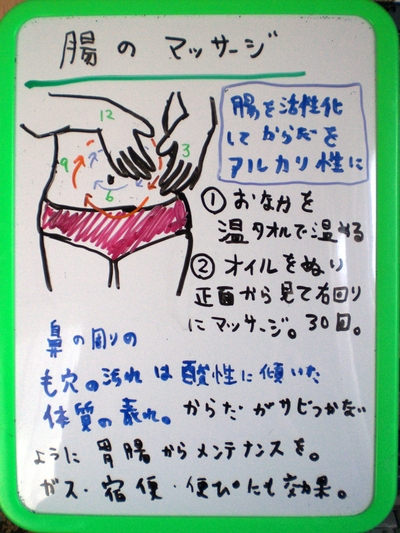 腸のマッサージ
腸を活性化
してからだを
アルカリ性に
12
9
3
6
① おなかを
温タオルで温める
② オイルをぬり
正面から見て右回り
にマッサージ。30回。
鼻の周りの
毛穴の汚れは酸性に傾いた
体質の表れ。からだがサビつかない
ように胃腸からメンテナンスを。
ガス・宿便・便ぴにも効果。